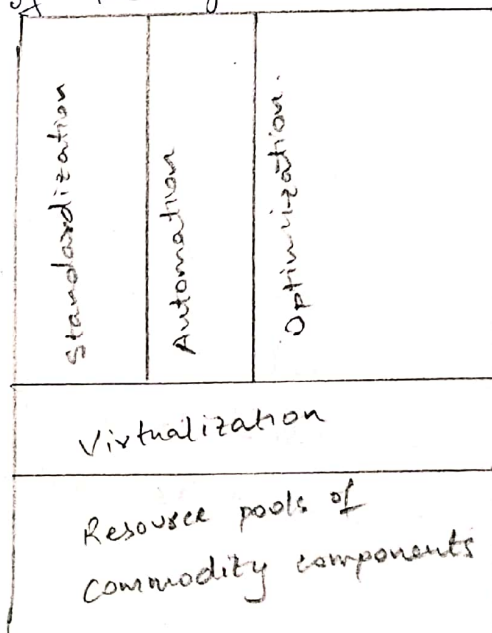 Standardization
Automation
Optimization.
Virtualization
Resource pools of
Commodity components